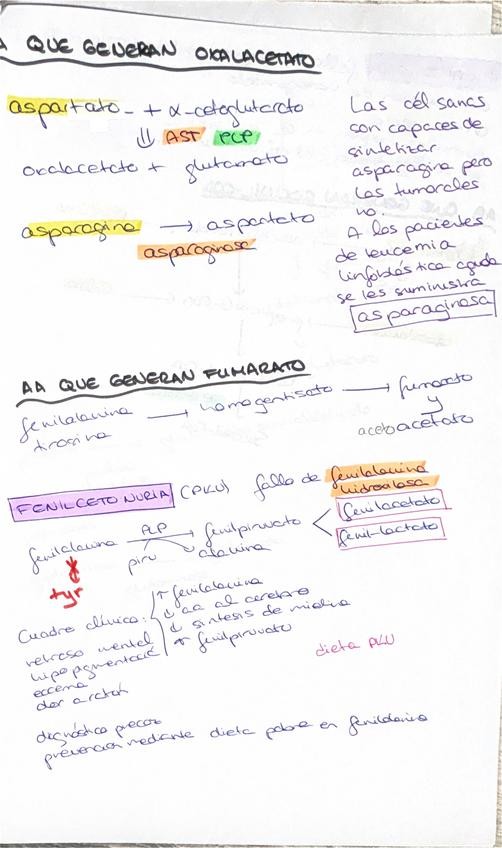 A QUE GENERAN OXALACETATO
aspartato - + α-cetoglutarato
⇓ AST PLP
oxalacetato + glutamato
asparagina → aspartato
asparaginasa
Las cél sanas
son capaces de
sintetizar
asparagina pero
las tumorales
no.
A los pacientes
de leucemia
linfoblástica aguda
se les suministra
asparaginasa
AA QUE GENERAN FUMARATO
fenilalanina → homogentisato → fumarato
tirosina
y
acetoacetato
FENILCETONURIA (PKU) fallo de fenilalanina
hidroxilasa
fenilalanina PLP → fenilpiruvato < fenilacetato
fenil-lactato
piru alanina
tyr
Cuadro clínico:
retraso mental
hipopigmentació
eccema
olor a ratón
↑ fenilalanina
↓ aa al cerebro
↓ síntesis de mielina
↑ fenilpiruvato
dieta PKU
diagnóstico precoz
prevención mediante dieta pobre en fenilalanina